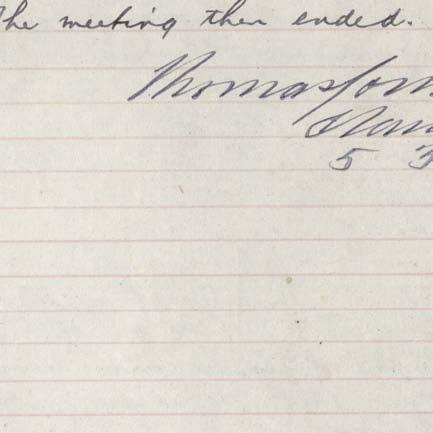 The meeting then ended.
Thomas
5 3